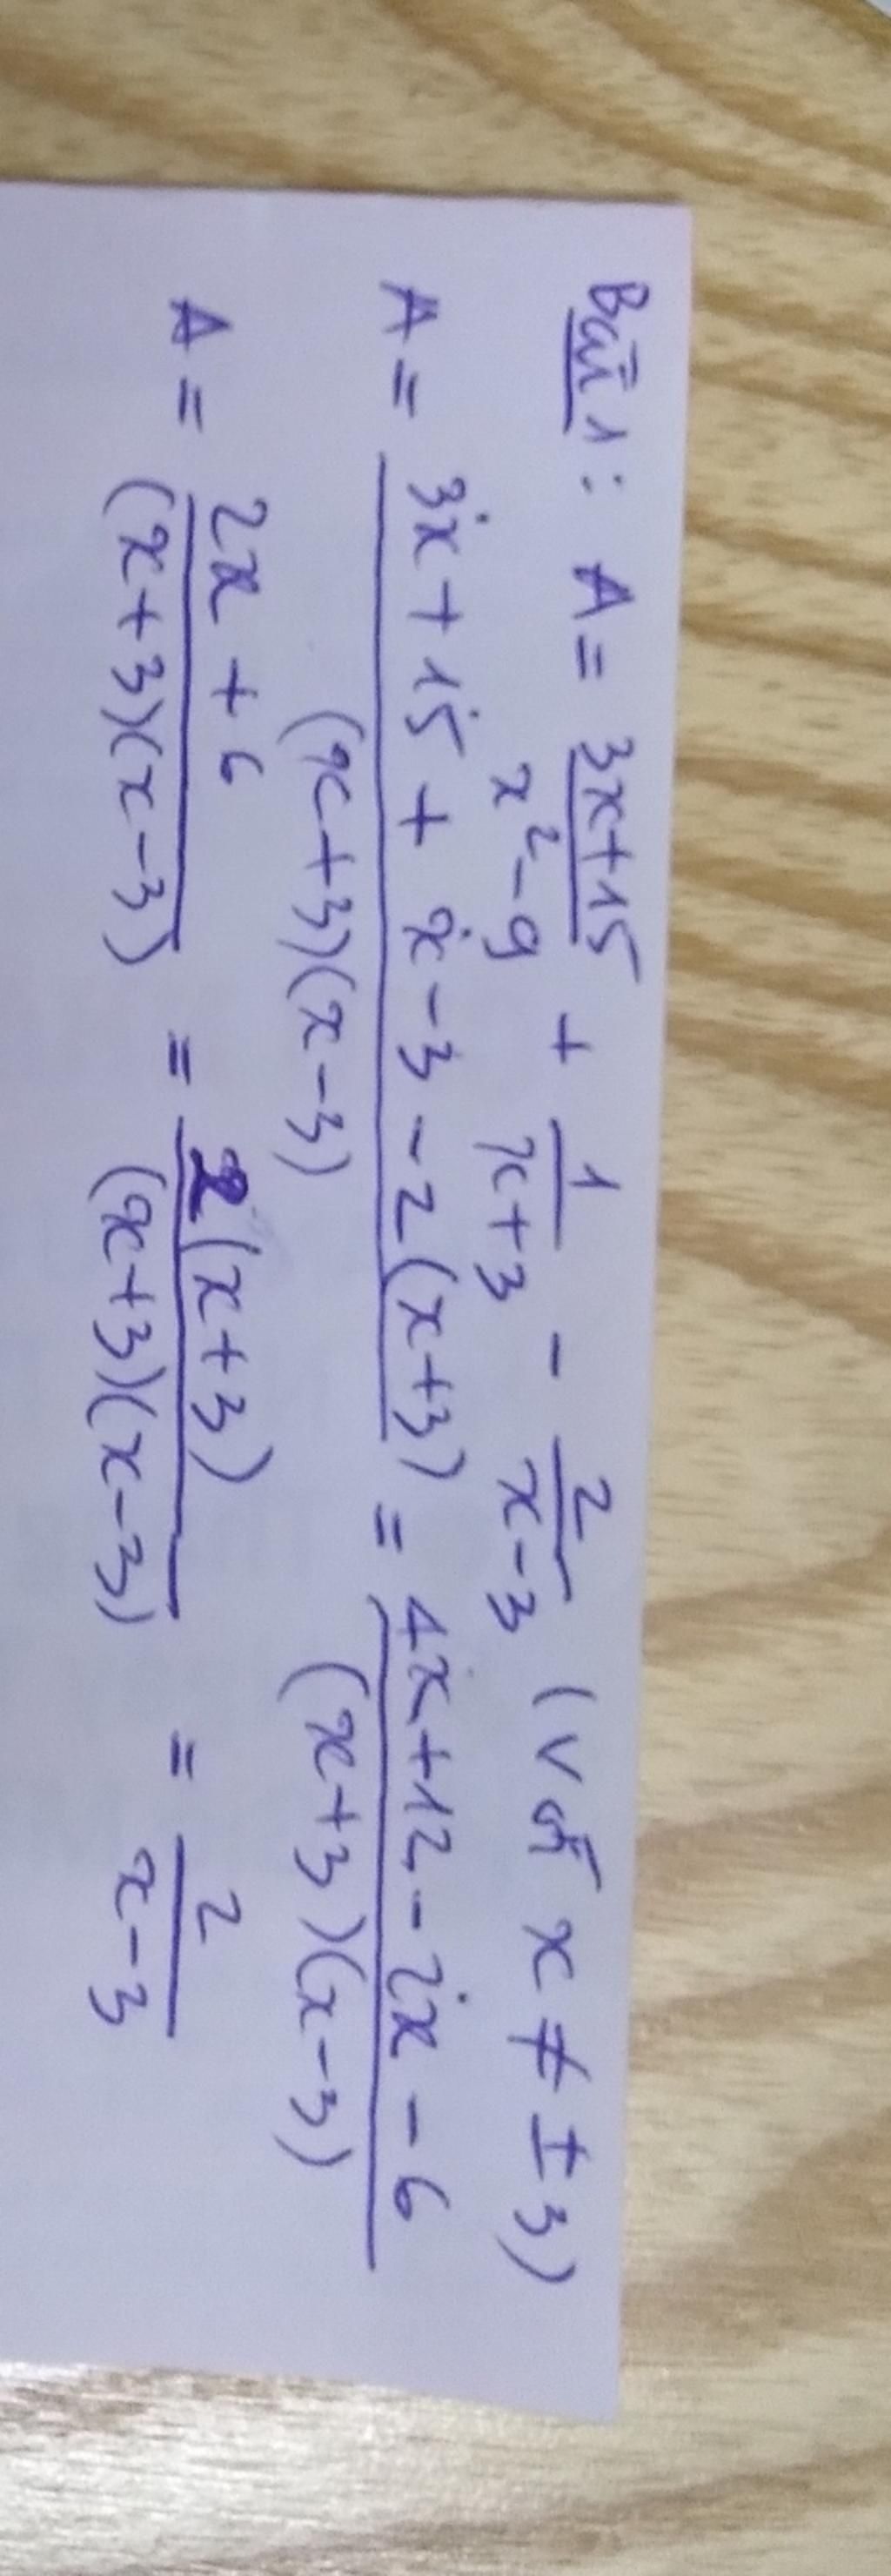 Bài 1: A = (3x+15)/(x²-9) + 1/(x+3) - 2/(x-3) (với x ≠ ±3)
A = (3x+15+x-3-2(x+3))/((x+3)(x-3)) = (4x+12-2x-6)/((x+3)(x-3))
A = (2x+6)/((x+3)(x-3)) = (2(x+3))/((x+3)(x-3)) = 2/(x-3)